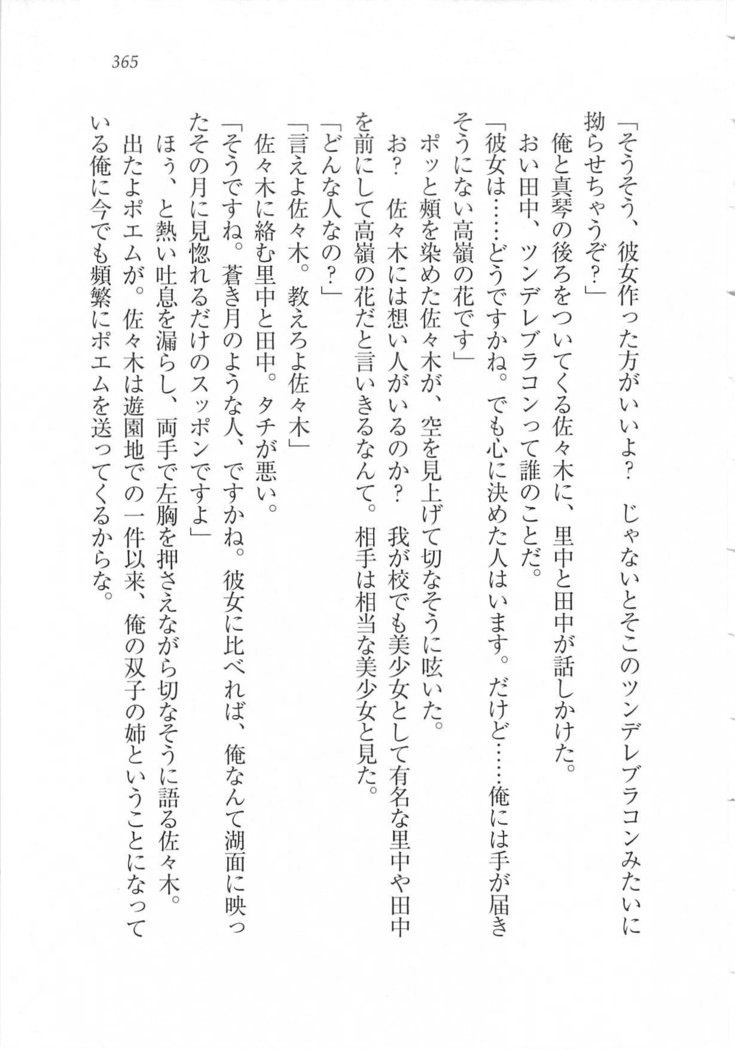 365
「そうそう、彼女作った方がいいよ？　じゃないとそこのツンデレブラコンみたいに
拗らせちゃうぞ？」
俺と真琴の後ろをついてくる佐々木に、里中と田中が話しかけた。
おい田中、ツンデレブラコンって誰のことだ。
「彼女は……どうですかね。でも心に決めた人はいます。だけど……俺には手が届き
そうにない高嶺の花です」
ポッと頰を染めた佐々木が、空を見上げて切なそうに呟いた。
お？　佐々木には想い人がいるのか？　我が校でも美少女として有名な里中や田中
を前にして高嶺の花だと言いきるなんて。相手は相当な美少女と見た。
「どんな人なの？」
「言えよ佐々木。教えろよ佐々木」
佐々木に絡む里中と田中。タチが悪い。
「そうですね。蒼き月のような人、ですかね。彼女に比べれば、俺なんて湖面に映っ
たその月に見惚れるだけのスッポンですよ」
ほぅ、と熱い吐息を漏らし、両手で左胸を押さえながら切なそうに語る佐々木。
出たよポエムが。佐々木は遊園地での一件以来、俺の双子の姉ということになって
いる俺に今でも頻繁にポエムを送ってくるからな。